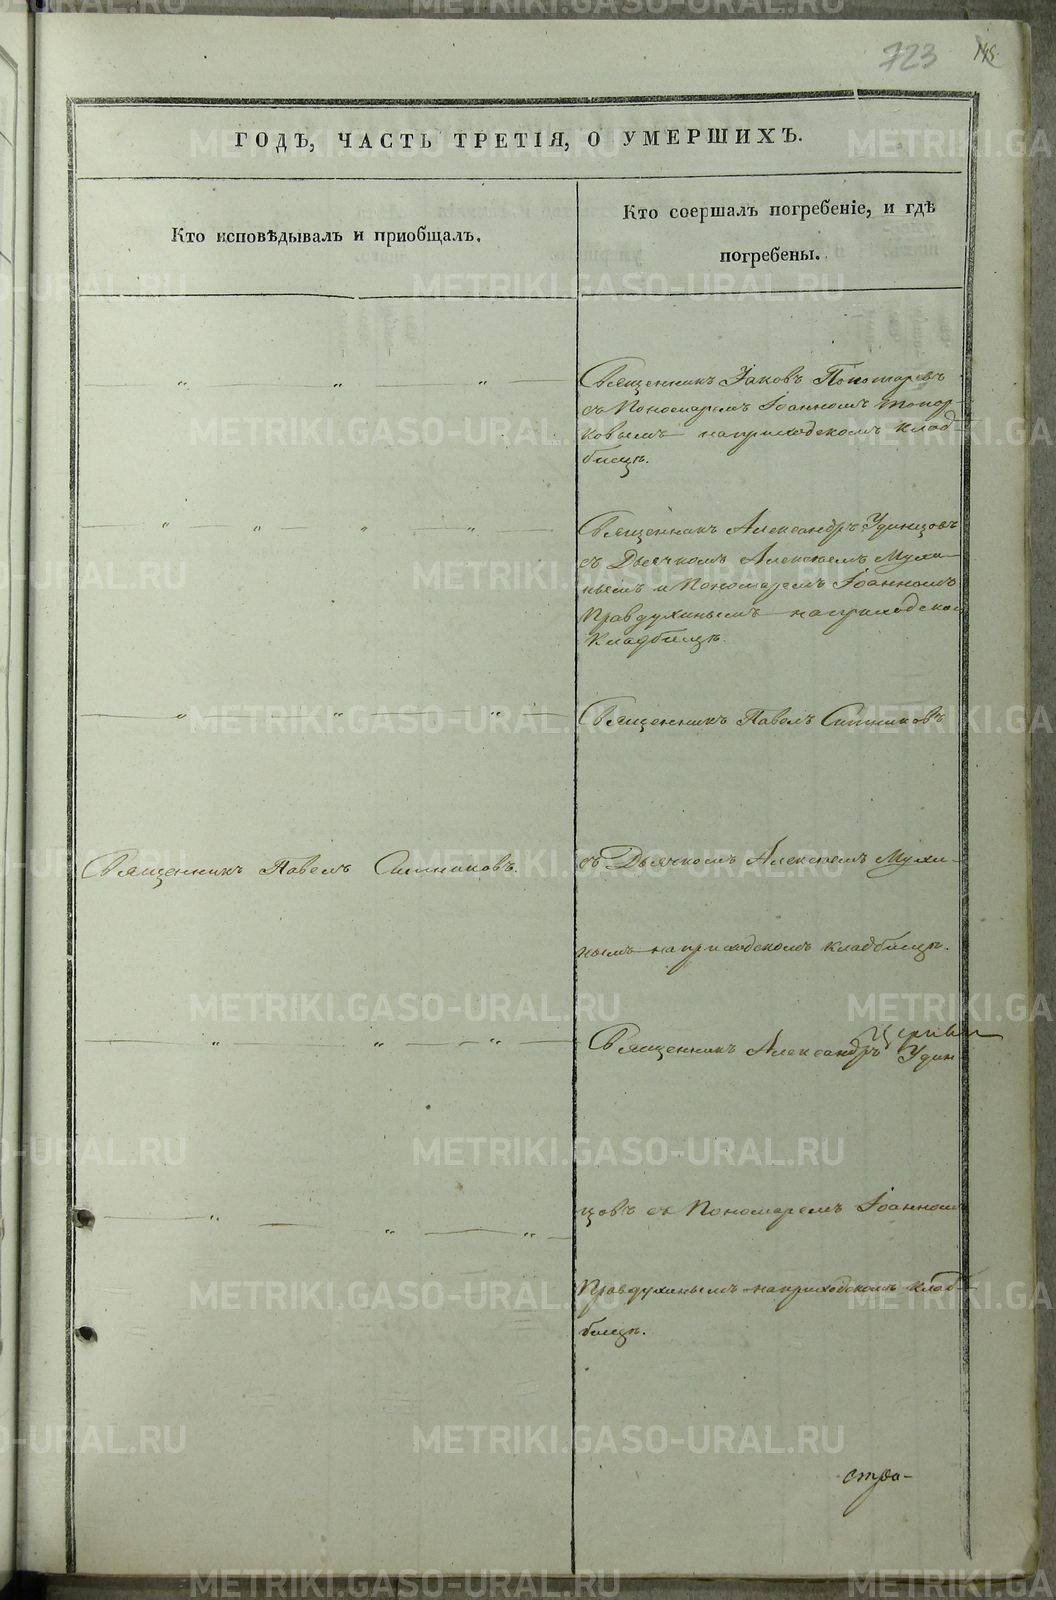 723
145
ГОДЪ, ЧАСТЬ ТРЕТІЯ, О УМЕРШИХЪ.
Кто исповѣдывалъ и приобщалъ.
Кто соершалъ погребеніе, и гдѣ
погребены.
Священникъ Іаковъ Пономаревъ
съ Пономаремъ Іоанномъ Топор-
ковымъ на приходскомъ клад-
бищѣ.
Священникъ Александръ Удинцовъ
съ Дьячкомъ Алексѣемъ Мухи-
нымъ и Пономаремъ Іоанномъ
Правдухинымъ на приходском
Кладбищѣ.
Священникъ Павелъ Ситниковъ
Священникъ Павелъ Ситниковъ.
съ Дьячкомъ Алексѣемъ Мухи-
нымъ на приходскомъ кладбищѣ.
Церкви
Священникъ Александръ Удин-
цовъ съ Пономаремъ Іоанномъ
Правдухинымъ на приходскомъ клад-
бищѣ.
METRIKI.GASO-URAL.RU